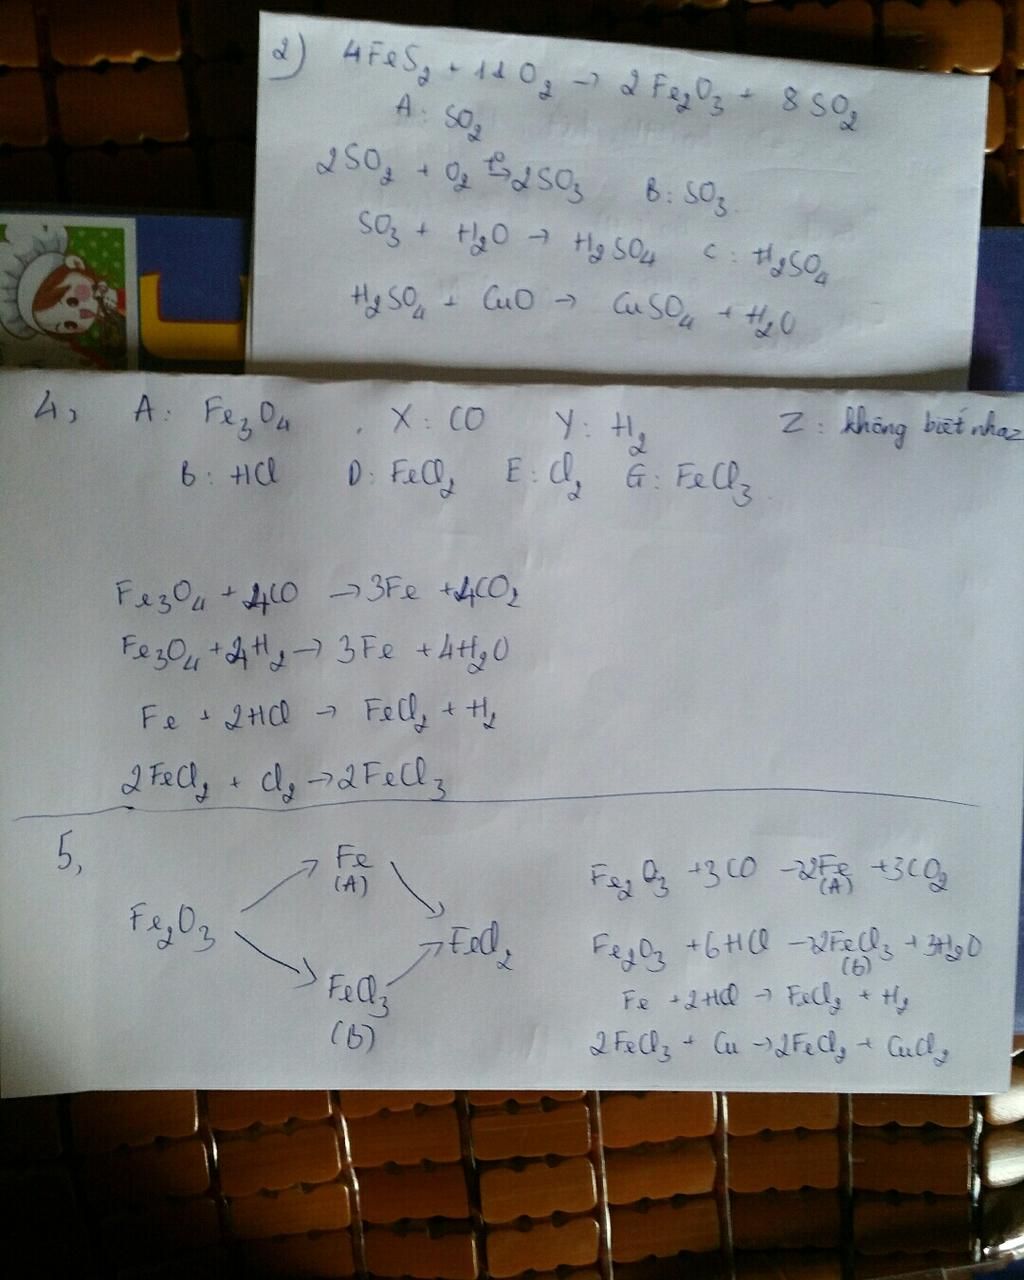 2) 4FeS₂ + 11O₂ → 2Fe₂O₃ + 8SO₂
A: SO₂
2SO₂ + O₂ t°→ 2SO₃ B: SO₃
SO₃ + H₂O → H₂SO₄ C: H₂SO₄
H₂SO₄ + CuO → CuSO₄ + H₂O
4, A: Fe₃O₄ . X: CO Y: H₂ Z: không biết nhaz
B: HCl D: FeCl₂ E: Cl₂ G: FeCl₃
Fe₃O₄ + 4CO → 3Fe + 4CO₂
Fe₃O₄ + 4H₂ → 3Fe + 4H₂O
Fe + 2HCl → FeCl₂ + H₂
2FeCl₂ + Cl₂ → 2FeCl₃
5,
Fe
(A)
Fe₂O₃
FeCl₂
FeCl₃
(B)
Fe₂O₃ + 3CO → 2Fe + 3CO₂
(A)
Fe₂O₃ + 6HCl → 2FeCl₃ + 3H₂O
(B)
Fe + 2HCl → FeCl₂ + H₂
2FeCl₃ + Cu → 2FeCl₂ + CuCl₂